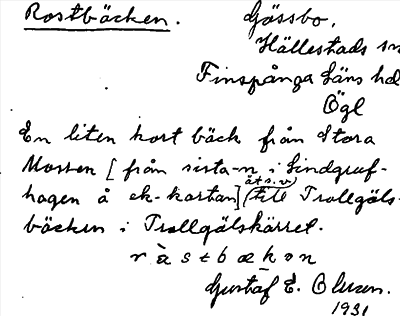 Rostbäcken. Gässbo,
Hällestads sn
Finspånga läns hd
Ögl
En liten kort bäck från Stora
Mossen [från sista -n i Lindgruf-
hagen å ek-kartan] (åt s.v.) till Trollgöls-
bäcken i Trollgölskärret.
ràstbækən
Gustaf E. Olsson.
1931